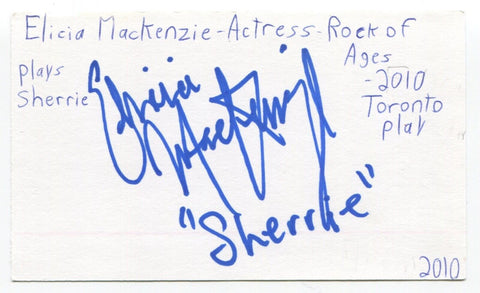 Elicia MacKenzie-Actress-Rock of
Ages
plays
-2010
Sherrie
Toronto
play
Elicia
MacKenzie
"Sherrie"
2010